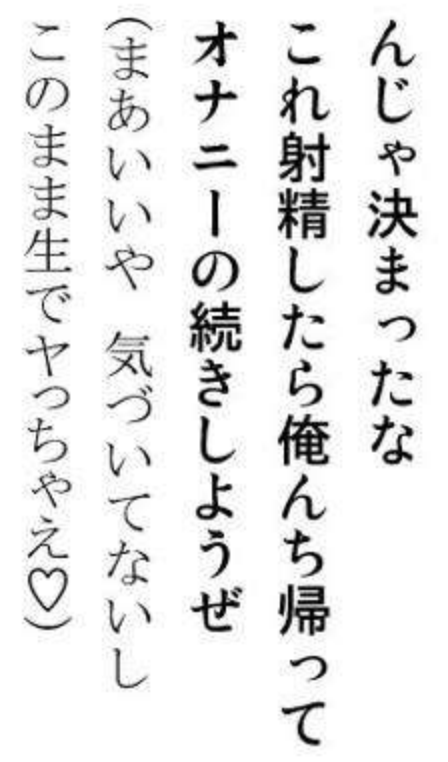 んじゃ決まったな
これ射精したら俺んち帰って
オナニーの続きしようぜ
(まあいいや　気づいてないし
このまま生でヤっちゃえ♡)